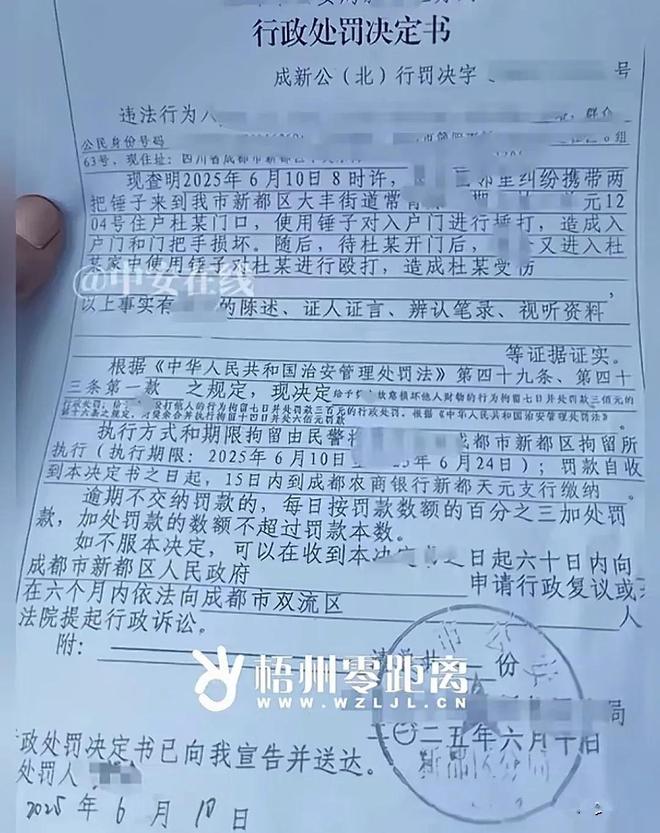 行政处罚决定书
成新公（北）行罚决字 号
违法行为人
公民身份号码 组
63号，现住址：四川省成都市新都区
现查明2025年6月10日8时许， 邻里纠纷携带两
把锤子来到我市新都区大丰街道常 元12
04号住户杜某门口，使用锤子对入户门进行捶打，造成入
户门和门把手损坏。随后，待杜某开门后， 又进入杜
某家中使用锤子对杜某进行殴打，造成杜某受伤
@中安在线
以上事实有 的陈述、证人证言、辨认笔录、视听资料
等证据证实。
根据《中华人民共和国治安管理处罚法》第四十九条、第四十
三条第一款 之规定，现决定 给予 故意损坏他人财物的行为拘留七日并处罚款三佰元的
行政处罚，给予 殴打他人的行为拘留七日并处罚款三百元的行政处罚。根据《中华人民共和国治安管理处罚法》
第十六条之规定， 合并执行拘留十四日并处六佰元罚款
执行方式和期限拘留由民警将 成都市新都区拘留所
执行（执行期限：2025年6月10日至2025年6月24日）；罚款自收
到本决定书之日起，15日内到成都农商银行新都天元支行缴纳。
逾期不交纳罚款的，每日按罚款数额的百分之三加处罚
款，加处罚款的数额不超过罚款本数。
如不服本决定，可以在收到本决定书之日起六十日内向
成都市新都区人民政府 申请行政复议或
在六个月内依法向成都市双流区 人
法院提起行政诉讼。
附： 清单共 份
梧州零距离
WWW.WZLJL.CN
局
二〇二五年六月十日
政处罚决定书已向我宣告并送达。
处罚人
2025年6月10日